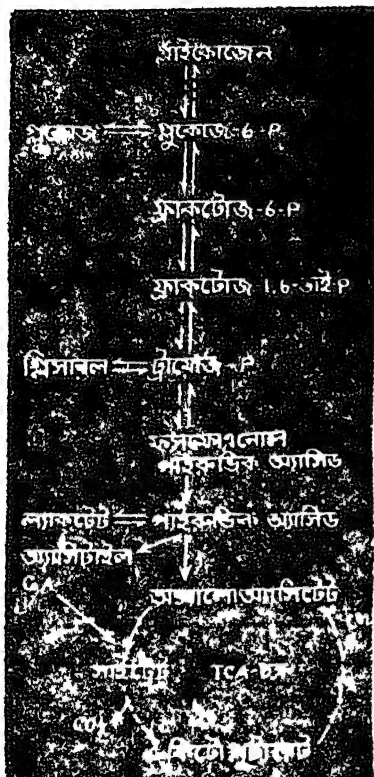 গ্লাইকোজেন
গ্লুকোজ গ্লুকোজ-6-P
ফ্রাকটোজ-6-P
ফ্রাকটোজ 1.6-ডাই P
গ্লিসারল ট্রায়োজ-P
ফসফোএনোল
পাইরুভিক অ্যাসিড
ল্যাকটেট পাইরুভিক অ্যাসিড
অ্যাসিটাইল
অক্সালোঅ্যাসিটেট
সাইট্রেট TCA-চক্র
CO₂